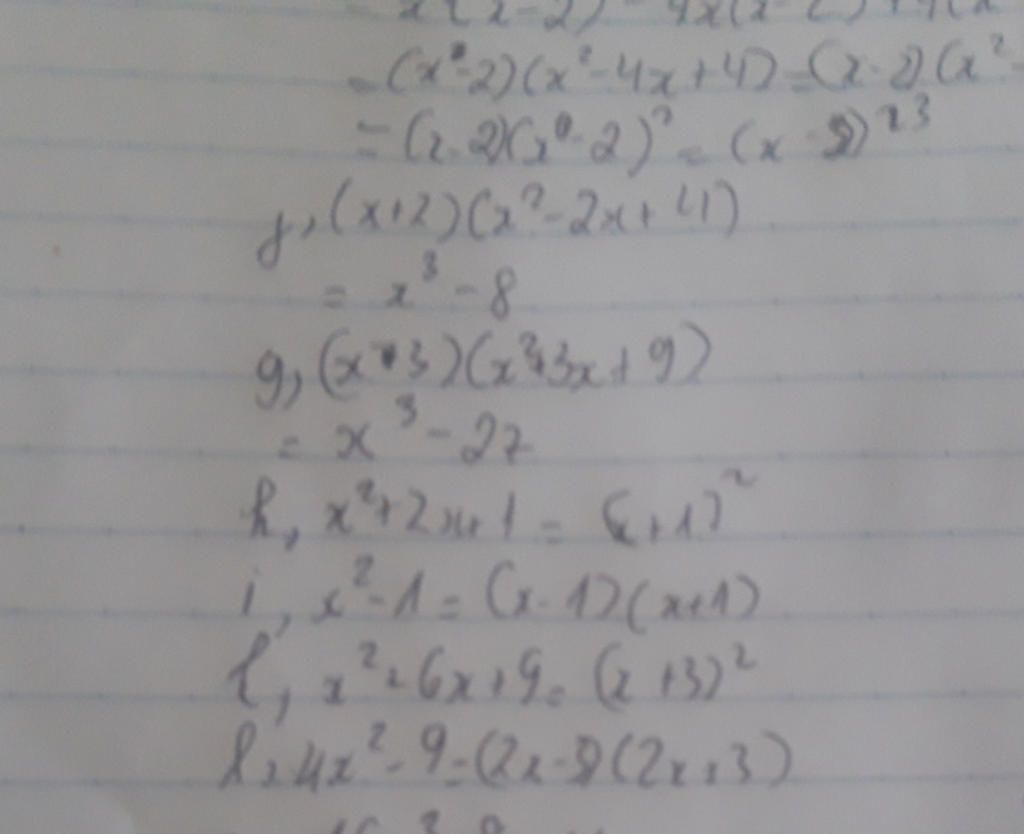 = (x-2)(x²-4x+4) = (x-2)(x²-
= (x-2)(x-2)² = (x-2)³
f, (x+2)(x²-2x+4)
= x³-8
g, (x-3)(x²+3x+9)
= x³-27
h, x²+2x+1 = (x+1)²
i, x²-1 = (x-1)(x+1)
k, x²+6x+9 = (x+3)²
l, 4x²-9 = (2x-3)(2x+3)